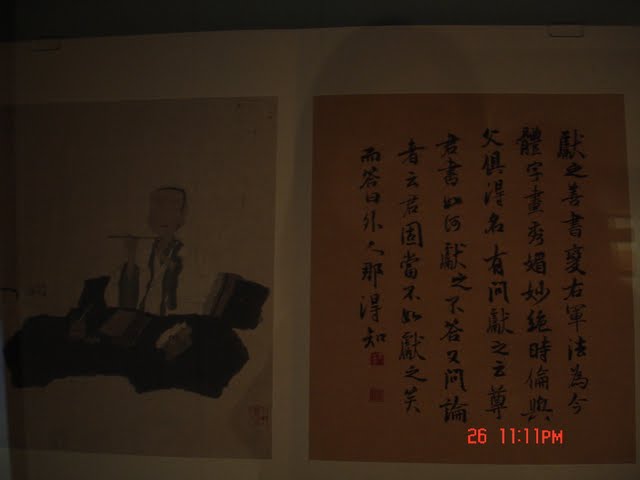 獻之善書變右軍法為今
體字畫秀媚妙絕時倫與
父俱得名有問獻之云尊
君書如何獻之不答又問論
者云君固當不如獻之笑
而答曰外人那得知
26 11:11PM